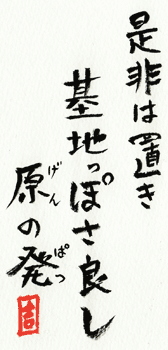 是非は置き
基地っぽさ良し
原の発
げん
ぱつ
吉